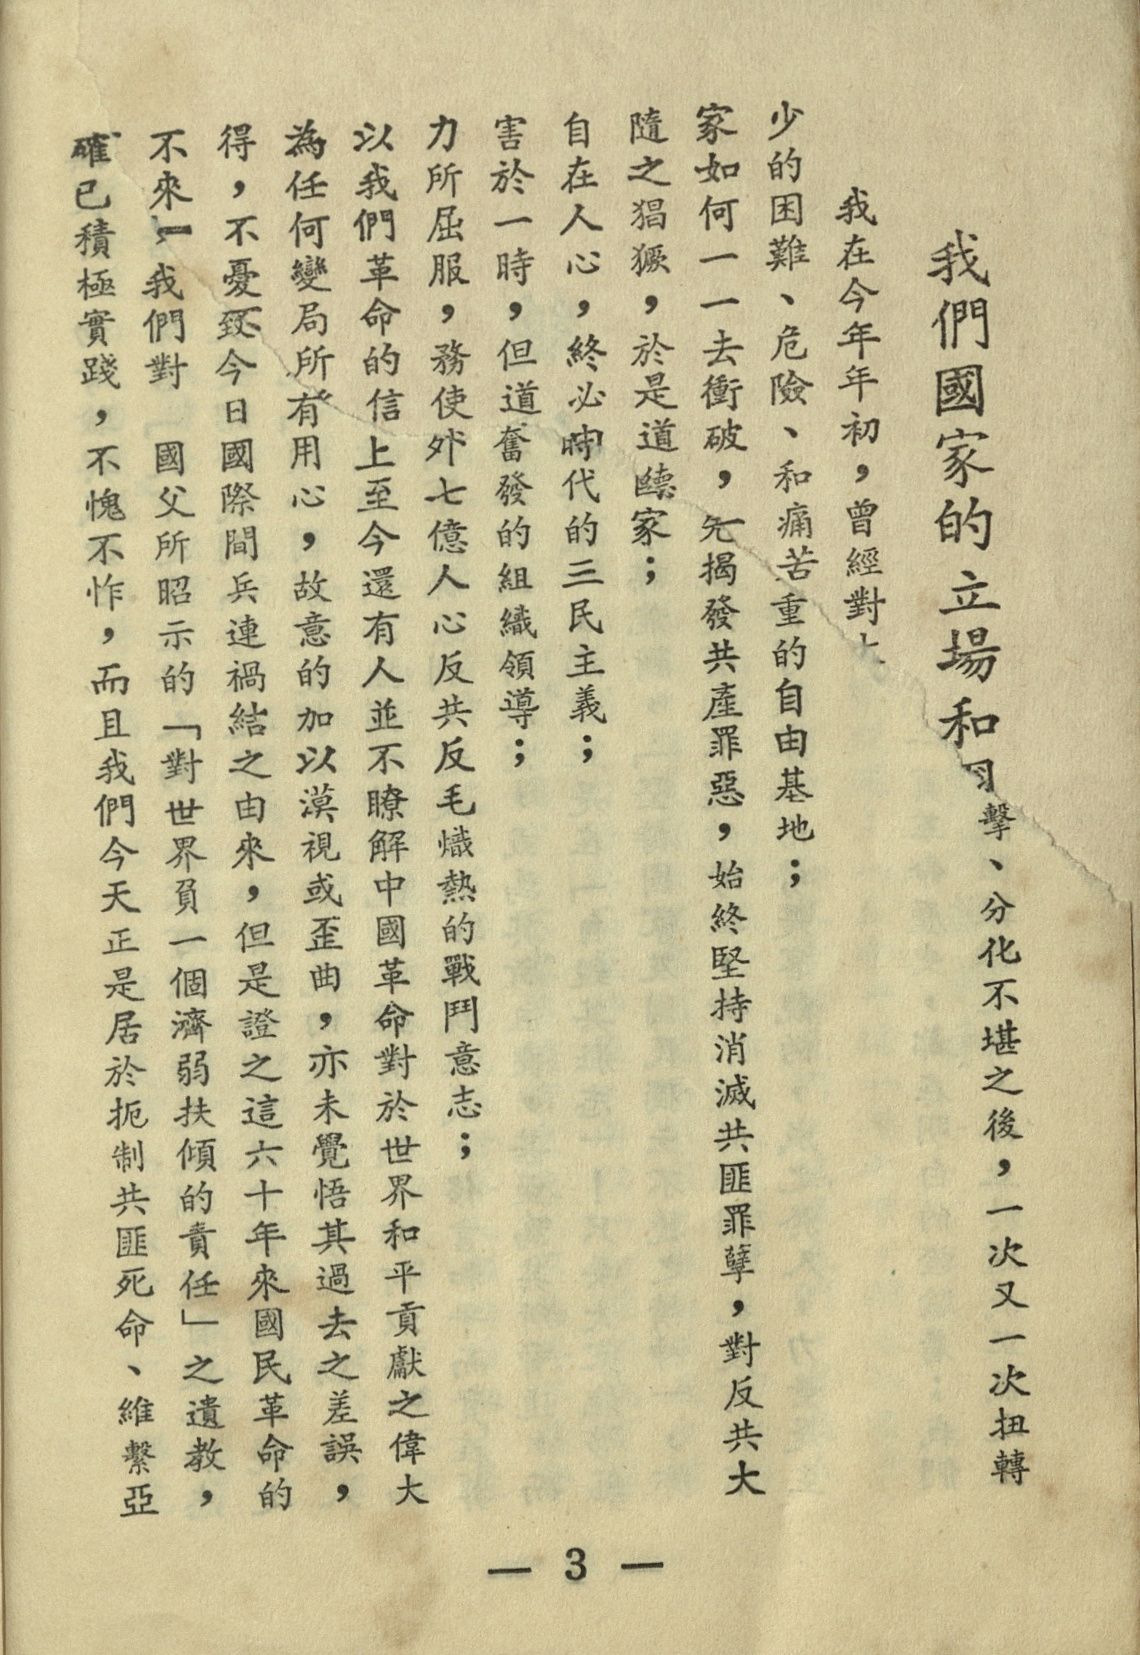 我們國家的立場和
擊、分化不堪之後，一次又一次扭轉
我在今年年初，曾經對
少的困難、危險、和痛苦重的自由基地；
家如何一一去衝破，先揭發共產罪惡，始終堅持消滅共匪罪孽，對反共大
隨之猖獗，於是道家；
自在人心，終必時代的三民主義；
害於一時，但道奮發的組織領導；
力所屈服，務使外七億人心反共反毛熾熱的戰鬥意志；
以我們革命的信上至今還有人並不瞭解中國革命對於世界和平貢獻之偉大
為任何變局所有用心，故意的加以漠視或歪曲，亦未覺悟其過去之差誤，
得，不憂致今日國際間兵連禍結之由來，但是證之這六十年來國民革命的
不來我們對　國父所昭示的「對世界負一個濟弱扶傾的責任」之遺教，
確已積極實踐，不愧不怍，而且我們今天正是居於扼制共匪死命、維繫亞
— 3 —